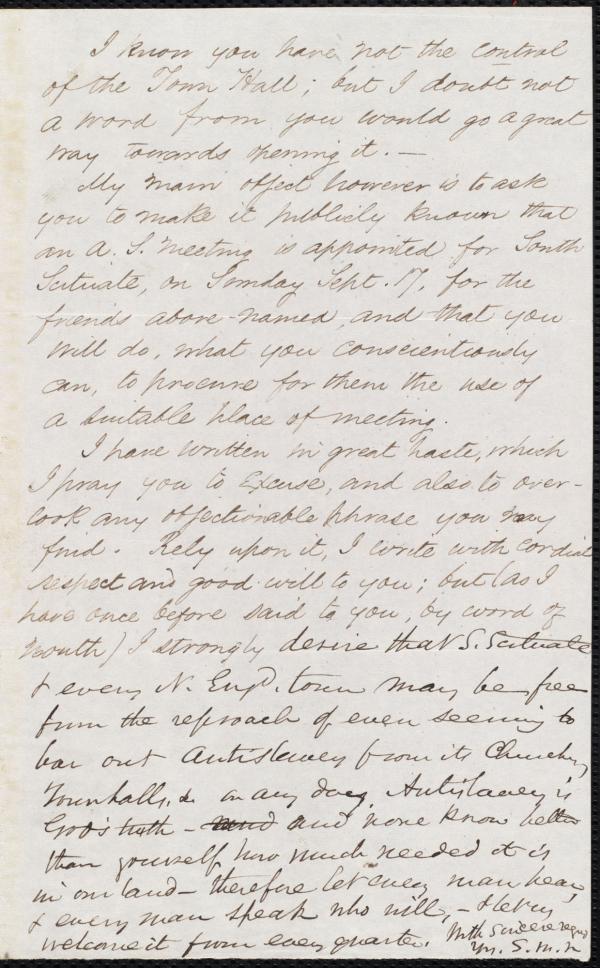 I know you have not the control
of the Town Hall; but I doubt not
a word from you would go a great
way towards opening it. —
My main object however is to ask
you to make it publicly known that
an A. S. Meeting is appointed for South
Scituate, on Sunday Sept. 17, for the
friends above-named, and that you
will do, what you conscientiously
can, to procure for them the use of
a suitable place of meeting.
I have written in great haste, which
I pray you to Excuse, and also to over-
look any objectionable phrase you may
find. Rely upon it, I write with cordial
respect and good-will to you; but (as I
have once before said to you, by word of
mouth) I strongly desire that S. Scituate
& every N. Engd. town may be free
from the reproach of even seeming to
bar out Antislavery from its Churches,
Townhalls, & on any day. Antislavery is
God's truth - and and none know better
than yourself how much needed it is
in our land - therefore let every man hear,
& every man speak who will, - & let us
welcome it from every quarter. With sincere regard
Yrs. S. M. Jr